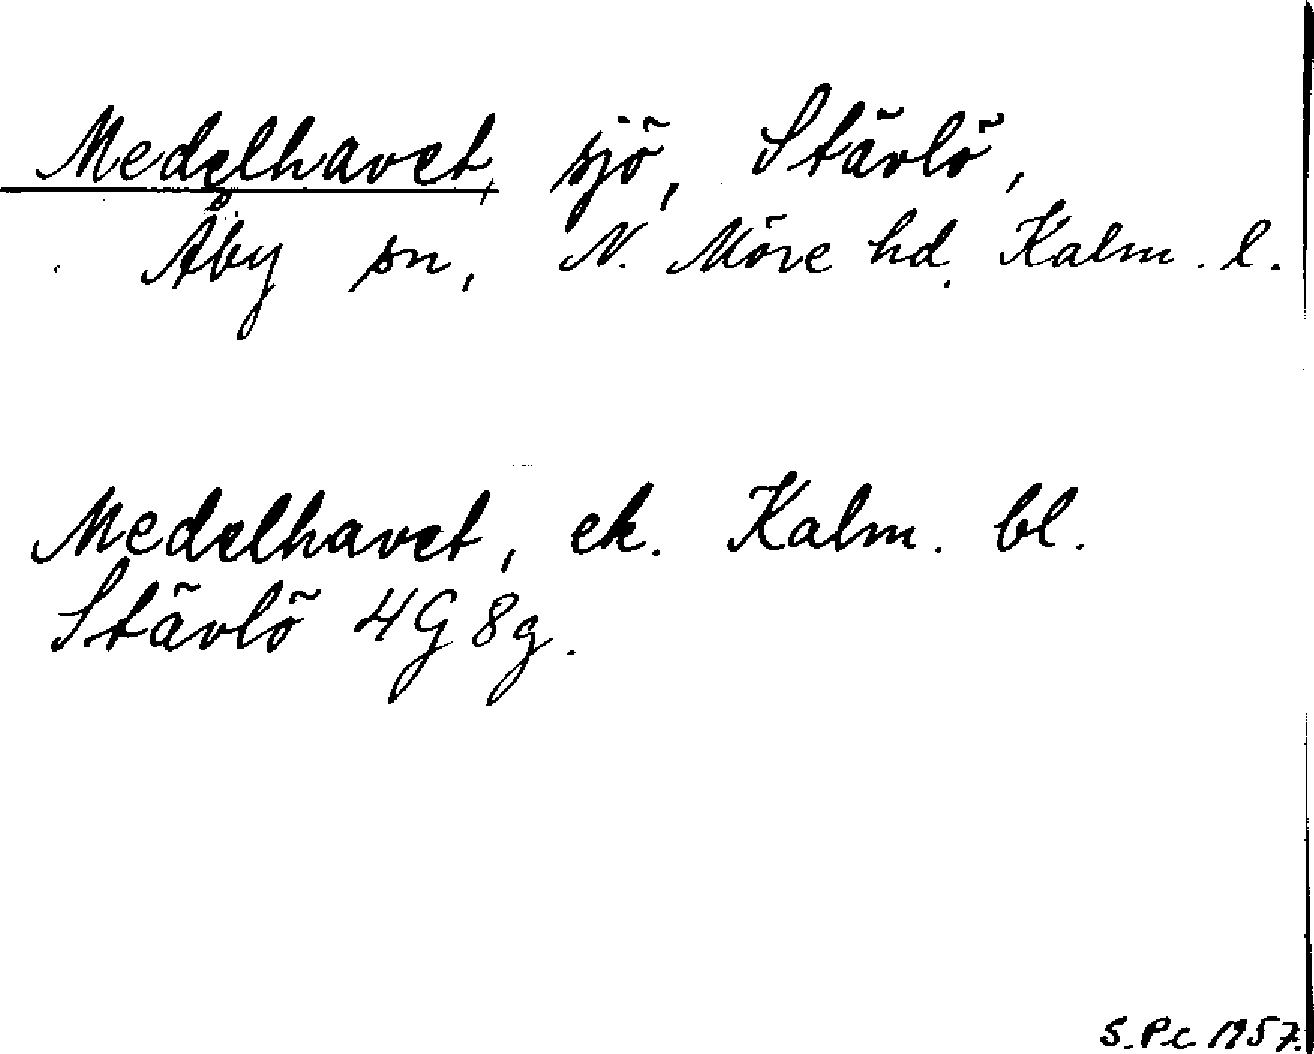 Medelhavet, sjö, Stävlö,
Åby sn, N. Möre hd. Kalm. l.
Medelhavet, ek. Kalm. bl.
Stävlö 4G 8g.
S. Pc 1957.